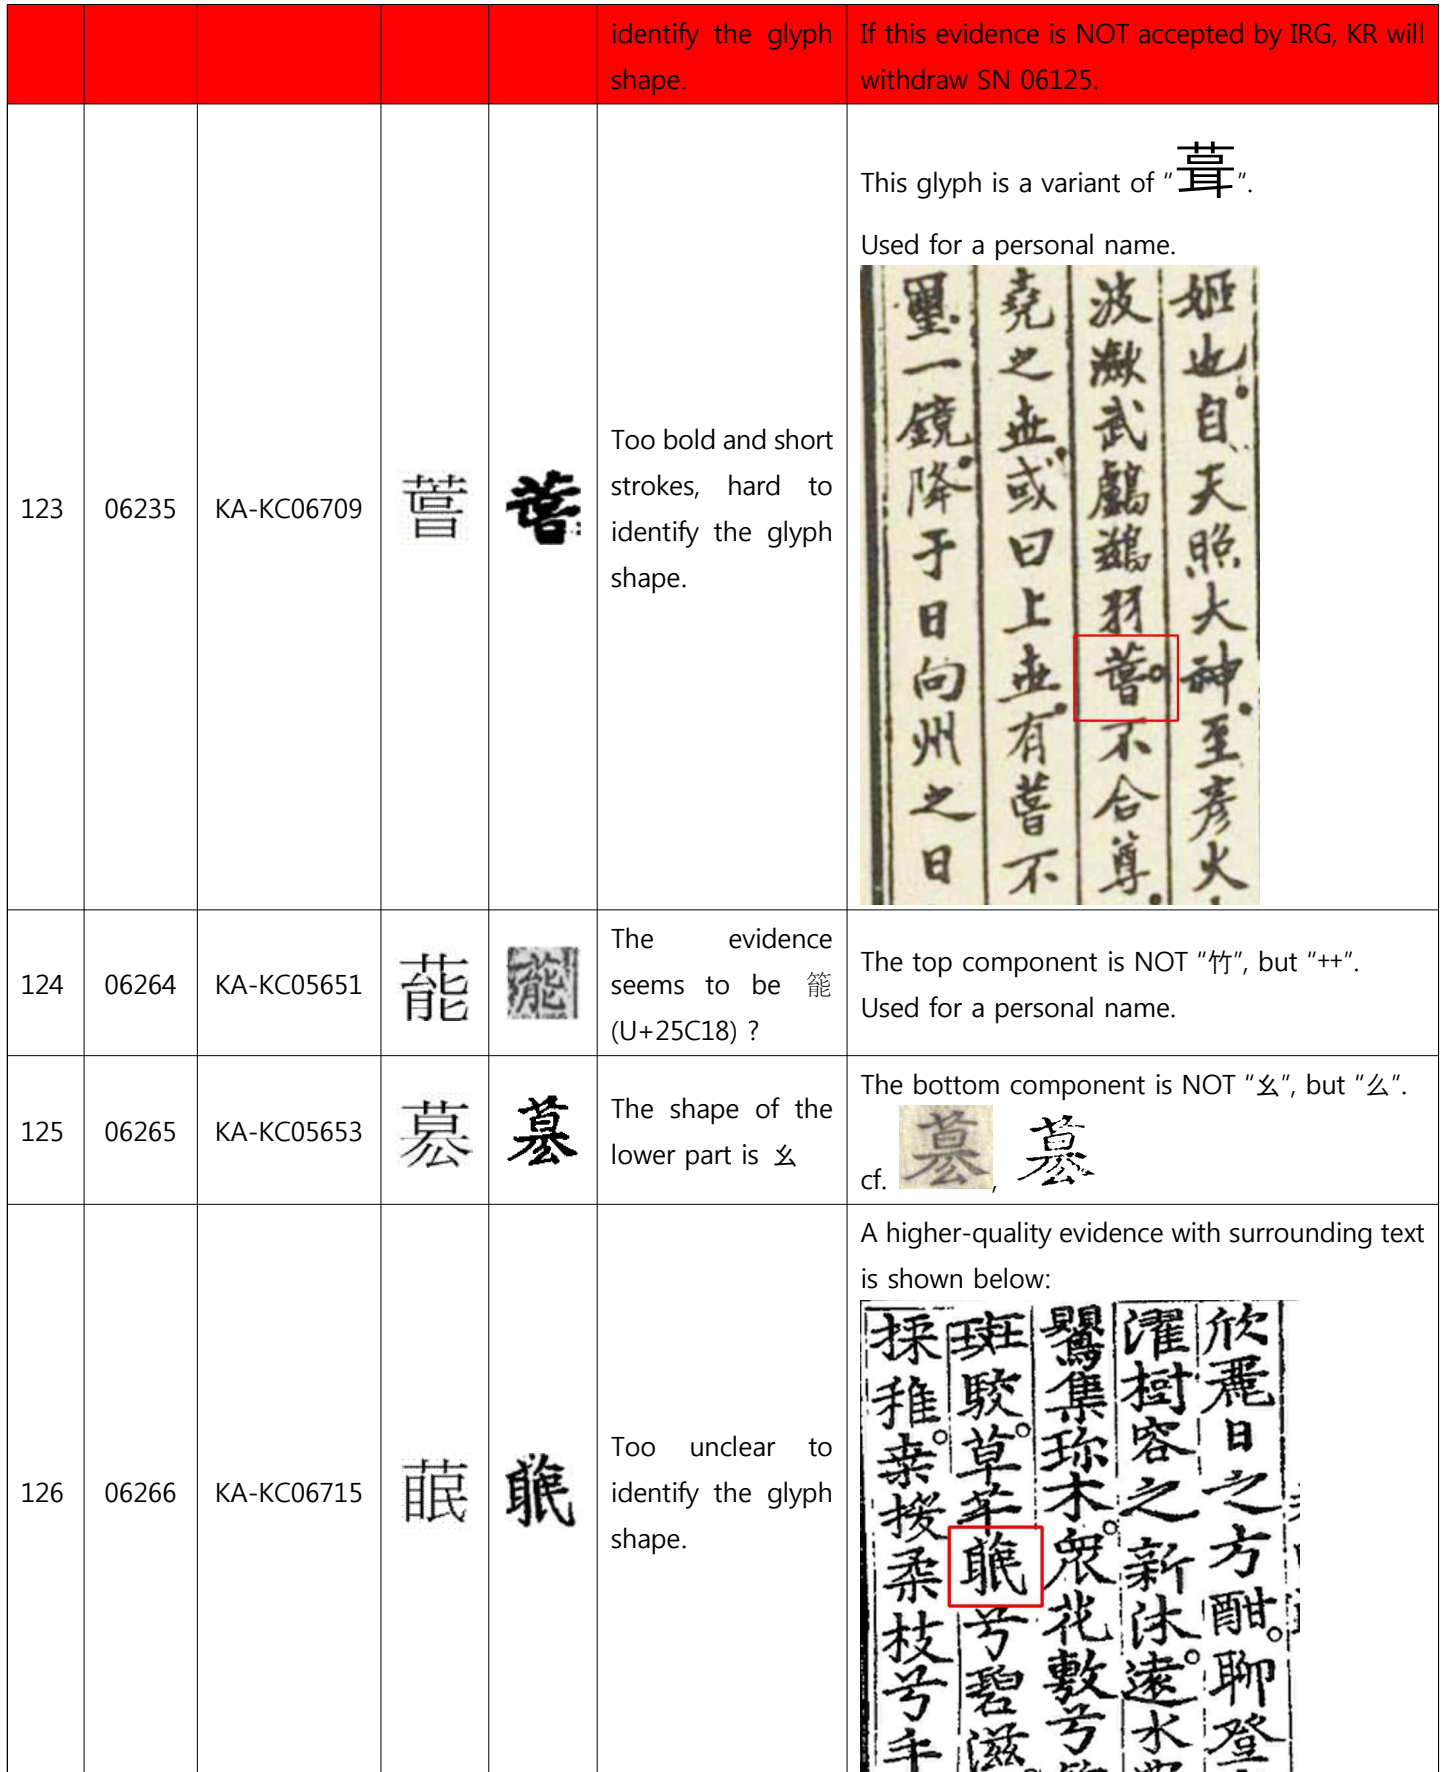 identify the glyph
shape.
If this evidence is NOT accepted by IRG, KR will
withdraw SN 06125.
123
06235
KA-KC06709
Too bold and short
strokes, hard to
identify the glyph
shape.
This glyph is a variant of "葺".
Used for a personal name.
姬也自天照大神至彦火
波瀲武鸕鷀羽
不合尊
堯之
或曰上
有
不
璽一鏡降于日向州之日
124
06264
KA-KC05651
The evidence
seems to be 𥰘
(U+25C18) ?
The top component is NOT "竹", but "艹".
Used for a personal name.
125
06265
KA-KC05653
The shape of the
lower part is 幺
The bottom component is NOT "幺", but "么".
cf.
,
126
06266
KA-KC06715
Too unclear to
identify the glyph
shape.
A higher-quality evidence with surrounding text
is shown below:
欣麗日之方酣聊登
濯樹容之新沐遠水
鸎集珎木衆花敷兮
斑駮草芊
兮碧滋
採稚桒援柔枝兮手